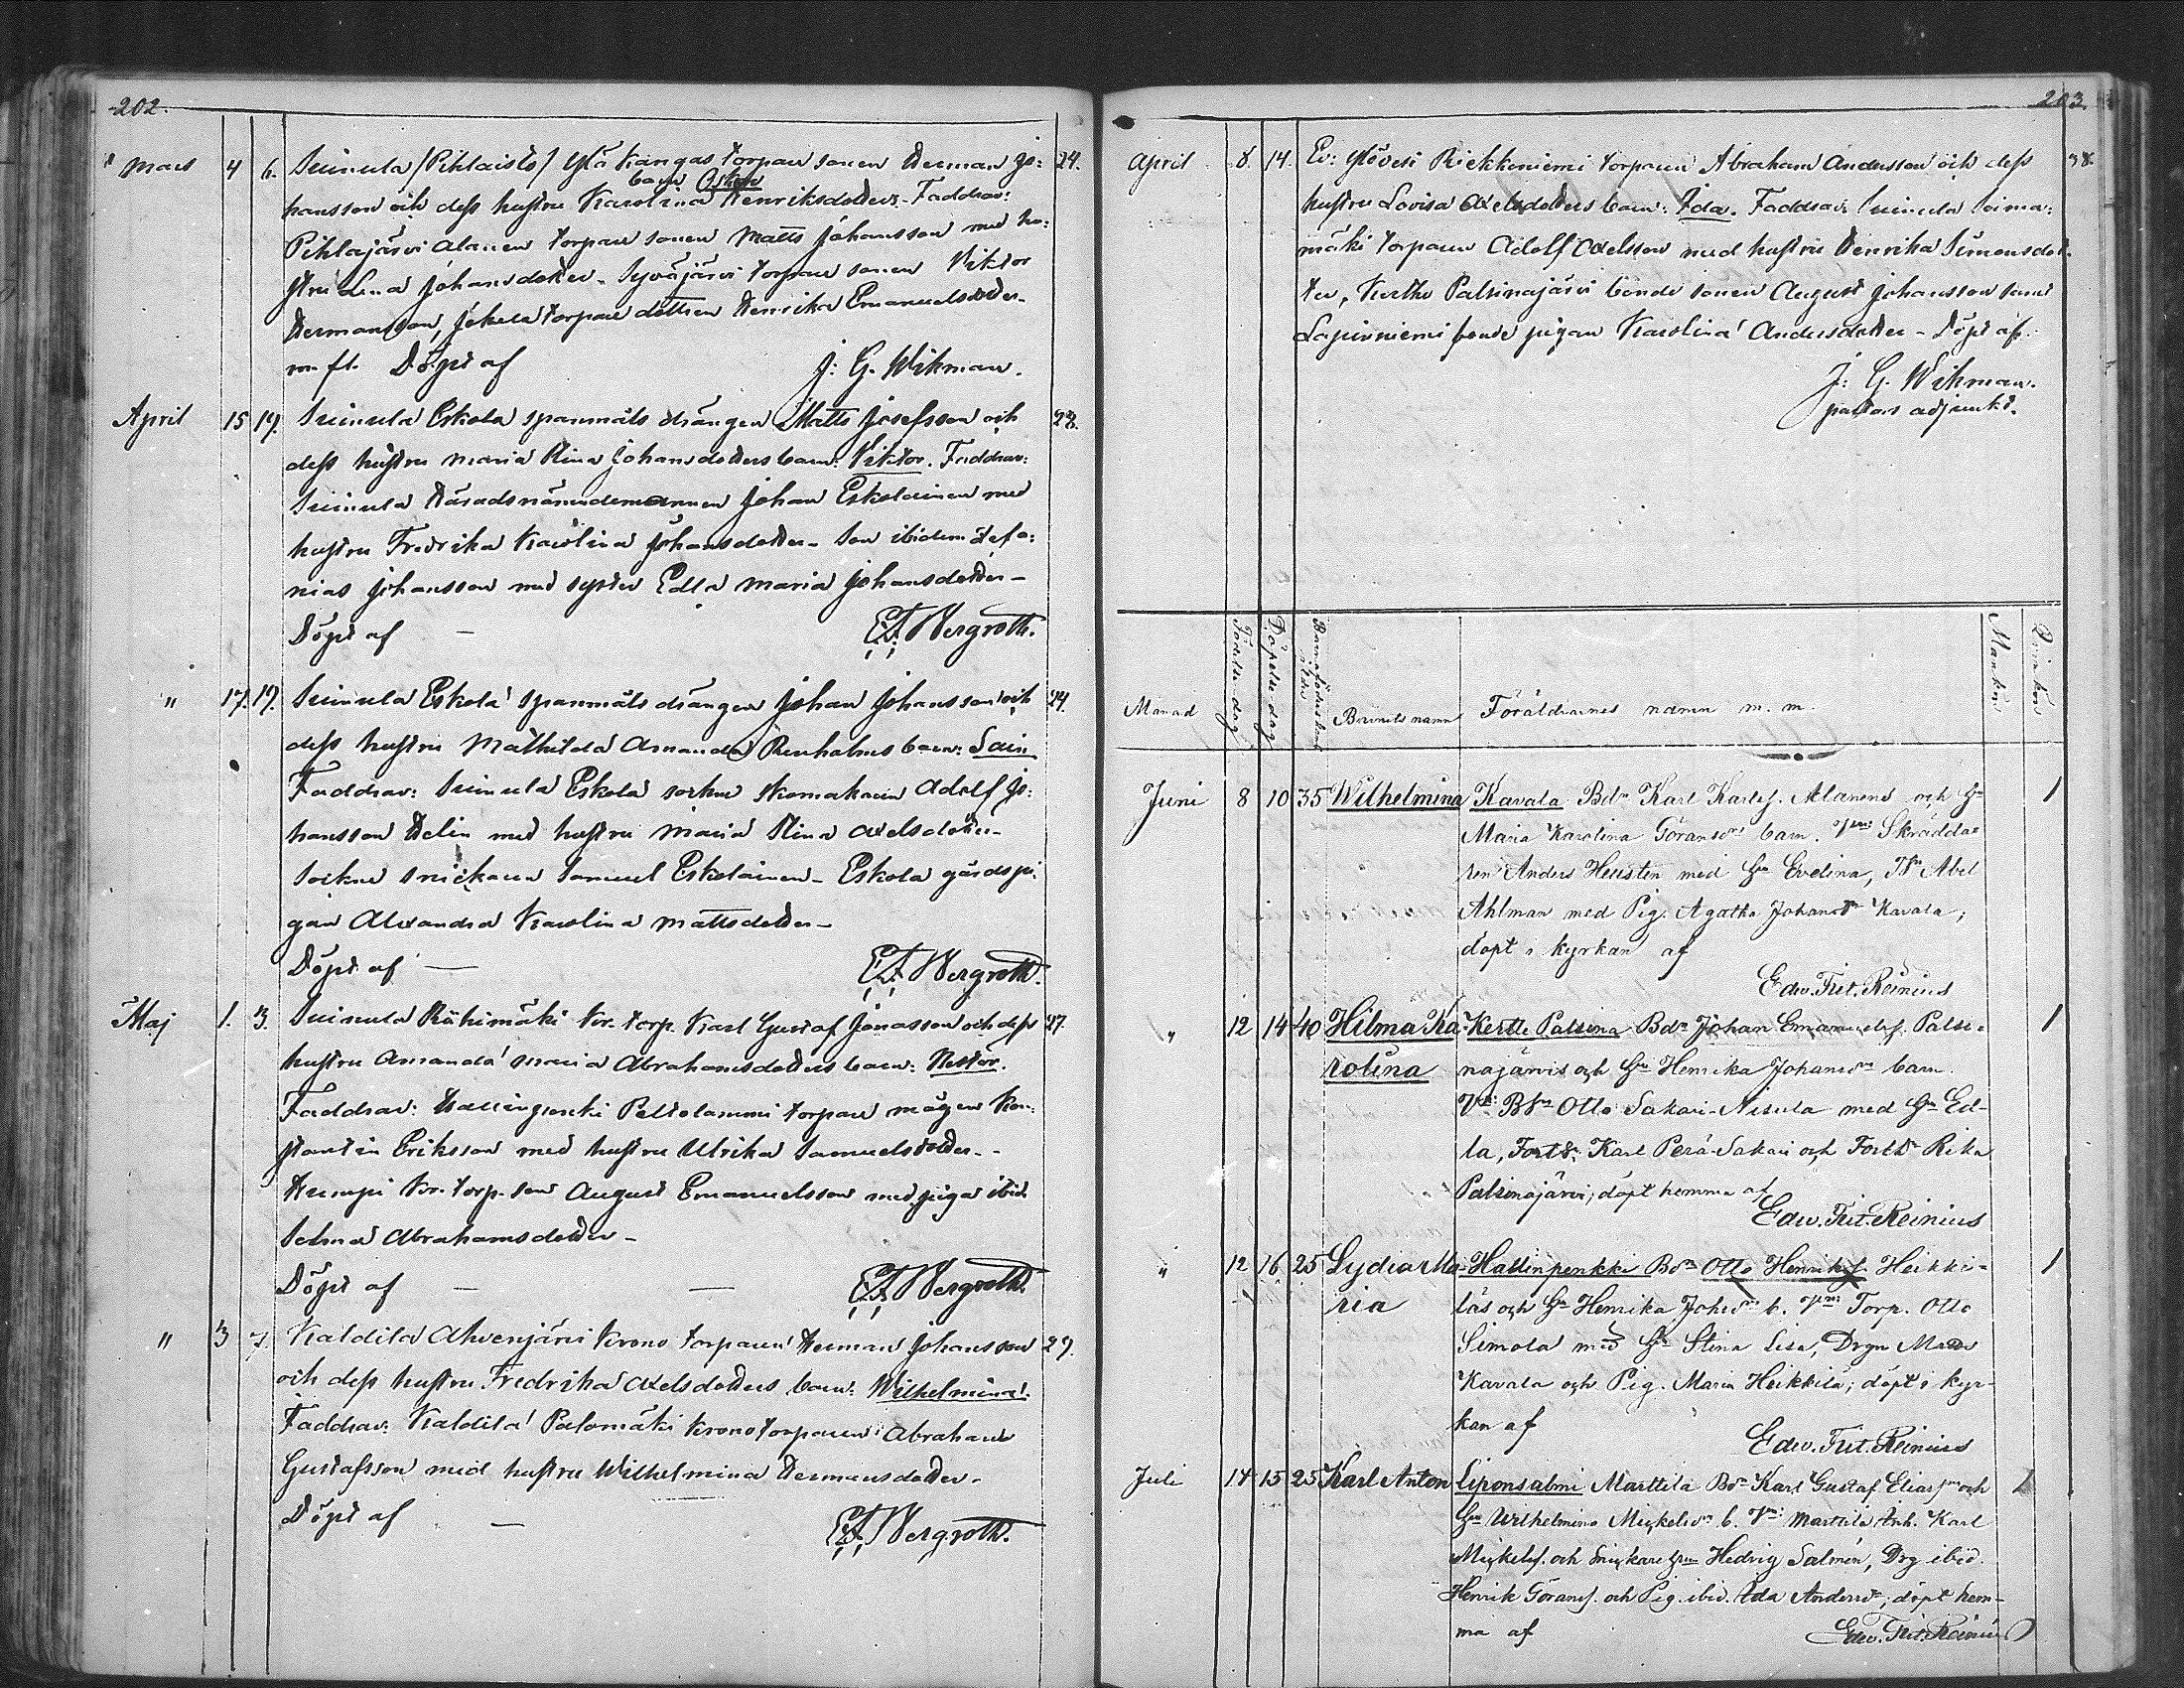 202.
" Mars 4 6. Suinula /Pihlaisto/ Ylä Kangas torpare sonen Herman Jo: 24.
barn Oskar
hansson och dess hustru Karolina Henriksdotters. Faddrar:
Pihlajärvi Alanen torpare sonen Matts Johansson med hu:
stru Lena Johansdotter. Syväjärvi torpare sonen Viktor
Hermansson, Jokela torpare dottren Henrika Emanuelsdotter
m. fl. Döpt af J: G. Wikman.
April 15 19. Suinula Eskola spanmåls drängen Matts Josefsson och 28.
dess hustru Maria Stina Johansdotters barn: Viktor. Faddrar:
Suinula Häradsnämndemannen Johan Eskolainen med
hustru Fredrika Karolina Johansdotter. Son ibidem Zefa:
nias Johansson med syster Edla Maria Johansdotter –
Döpt af – E. F. Bergroth.
" 17. 19. Suinula Eskola spanmåls drängen Johan Johansson och 24.
dess hustru Mathilda Amanda Renholms barn: Sain
Faddrar: Suinula Eskola sockne skomakaren Adolf Jo:
hansson Helin med hustru Maria Stina Axelsdotter –
Sockne snickaren Samuel Eskolainen – Eskola gårds pi:
gan Alexandra Karolina Mattsdotter –
Döpt af – E. F. Bergroth.
Maj 1. 3. Suinula Rähimäki Kr. torp. Karl Gustaf Jonasson och dess 27.
hustru Amanda Maria Abrahamsdotters barn: Nestor.
Faddrar: Hallinpenki Peltolammi torpare mågen Kon:
stantin Eriksson med hustru Ulrika Samuelsdotter. -
Humpi Kr. torp. son August Emanuelsson med pigan ibid
Selma Abrahamsdotter –
Döpt af – – E. F. Bergroth.
" 3 7. Kaldila Ahvenjärvi Krono torparen Herman Johansson 29.
och dess hustru Fredrika Axelsdotters barn: Wilhelmina.
Faddrar: Kaldila Palomäki Kronotorparen Abraham
Gustafsson med hustru Wilhelmina Hermansdotter.
Döpt af – E. F. Bergroth.
203.
April 8. 14. Ev: Ylövesi Riekkeniemi torparen Abraham Andersson och dess 38.
hustru Lovisa Axelsdotters barn: Ida. Faddrar: Suinula Soima:
mäki torparen Adolf Axelsson med hustru Henrika Simonsdot:
ter, Kertte Palsinajärvi bonde sonen August Johansson samt
Lapinniemi bonde pigan Karolina Andersdotter – Döpt af.
J: G. Wikman.
pastors adjunkt.
Månad Födelse-dag Döpelse-dag Barnaföderskans ålder Barnets namn Föräldrarnes namn m. m. Mankön Qvinkön
Juni 8 10 35 Wilhelmina Kavala Bdn Karl Karlss. Alanens och Hu 1
Maria Karolina Göransdrs barn. Vnn: Skrädda-
ren Anders Hellsten med Hu Evelina, Dr Abel
Ahlman med Pig. Agatha Johansdr Kavala;
döpt i kyrkan af
Edw. Frit. Reinius
" 12 14 40 Hilma Ka- Kertte Palsina Bdn Johan Emanuelss. Palsi- 1
rolina najärvis och Hu Henrika Johansdrs barn.
Vnn: Bdn Otto Sakari-Nisula med Hu Ed-
la, Fordtn. Karl Perä-Sakari och Fordtn Rika
Palsinajärvi; döpt hemma af
Edw. Frit. Reinius
" 12 16 25 Lydia Ma- Hallinpenkki Bdn Otto Henrikss. Heikki- 1
ria läs och Hu Henrika Johsdrs b. Vnn: Torp. Otto
Simola med Hu Stina Lisa, Drgn Matts
Kavala och Pig. Maria Heikkilä; döpt i kyr-
kan af
Edw. Frit. Reinius
Juli 14 15 25 Karl Anton Liponsalmi Marttila Bdn Karl Gustaf Eliass. och 1
Hu Wilhelmina Mickelsdrs b. Vnn: Marttila Inh. Karl
Mickelss. och Snickarehun Hedvig Salmén, Drg ibid.
Henrik Göranss. och Pig. ibid. Ida Andersdr; döpt hem-
ma af Edw. Frit. Reinius